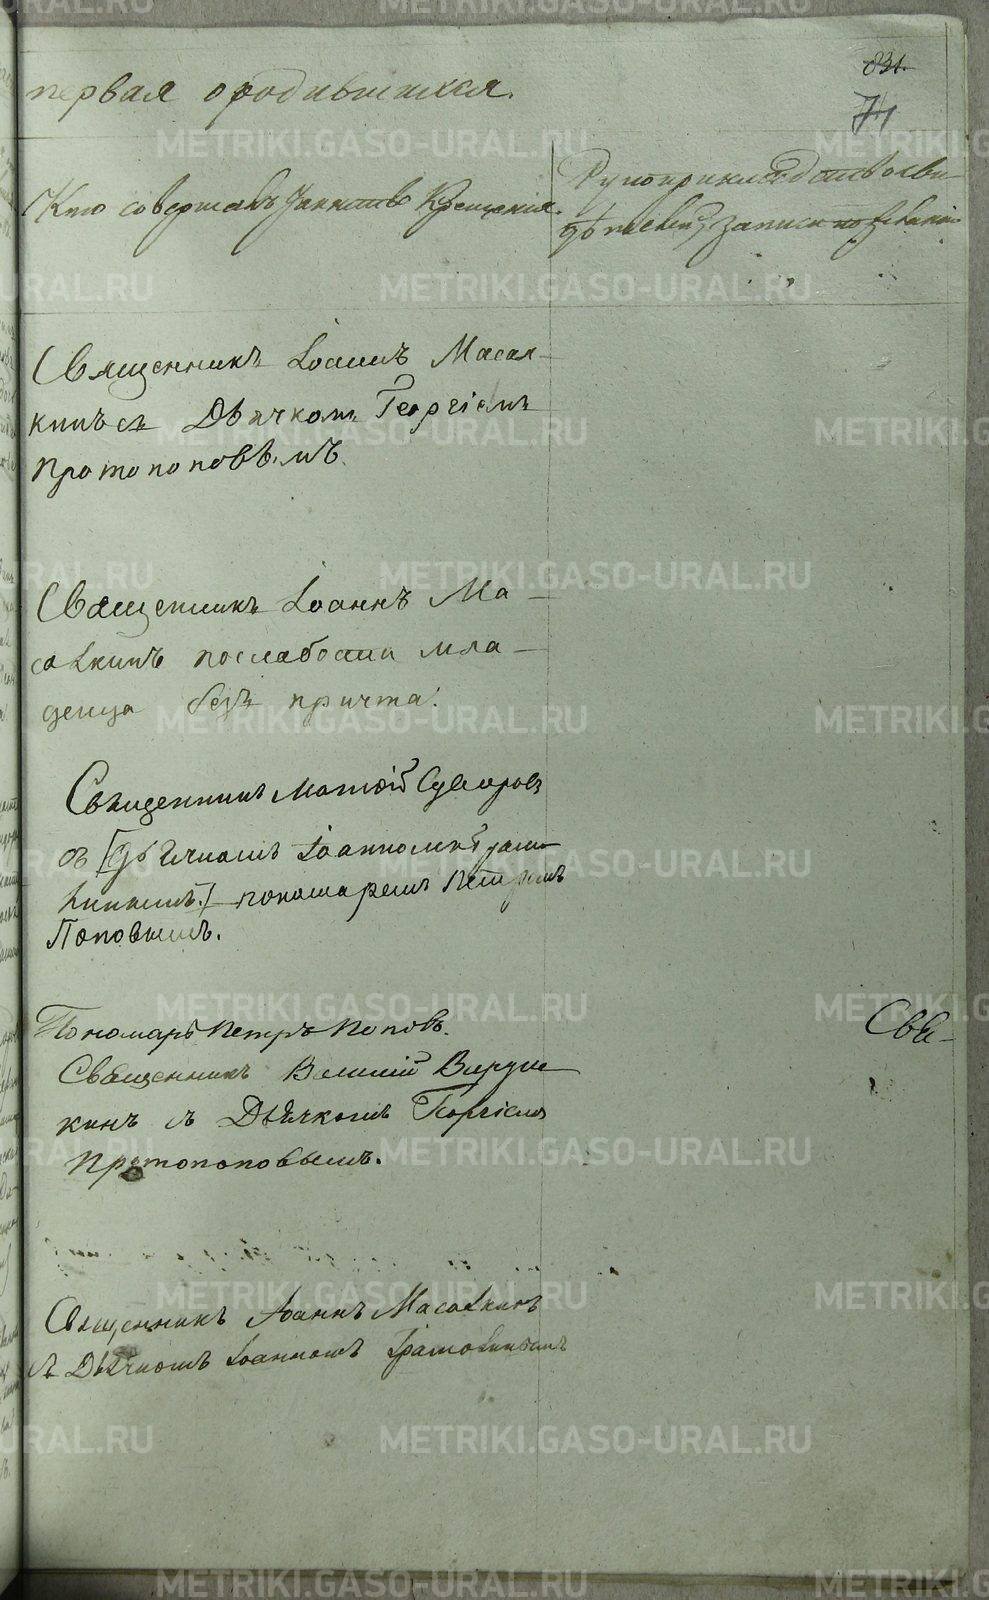 831.
71
первая о родившихся.
Кто совершалъ Таинство Крещенiя.
Рукоприкладство сви-
дѣтелей записи по желанiю
Священникъ Iоаннъ Масал-
кинъ съ Дьячкомъ Георгiемъ
Протопоповымъ.
Священникъ Iоаннъ Ма-
салкинъ по слабости мла-
денца безъ причта.
Священникъ Матѳiй Суворовъ
съ [Дьячкомъ Iоанномъ Грамо-
линымъ.] пономаремъ Петромъ
Поповымъ.
Пономарь Петръ Поповъ.
Священникъ Василiй
кинъ съ Дьячкомъ Георгiемъ
Протопоповымъ.
Сви-
Священникъ Iоаннъ Масалкинъ
съ Дьячкомъ Iоанномъ Грамолинымъ
METRIKI.GASO-URAL.RU